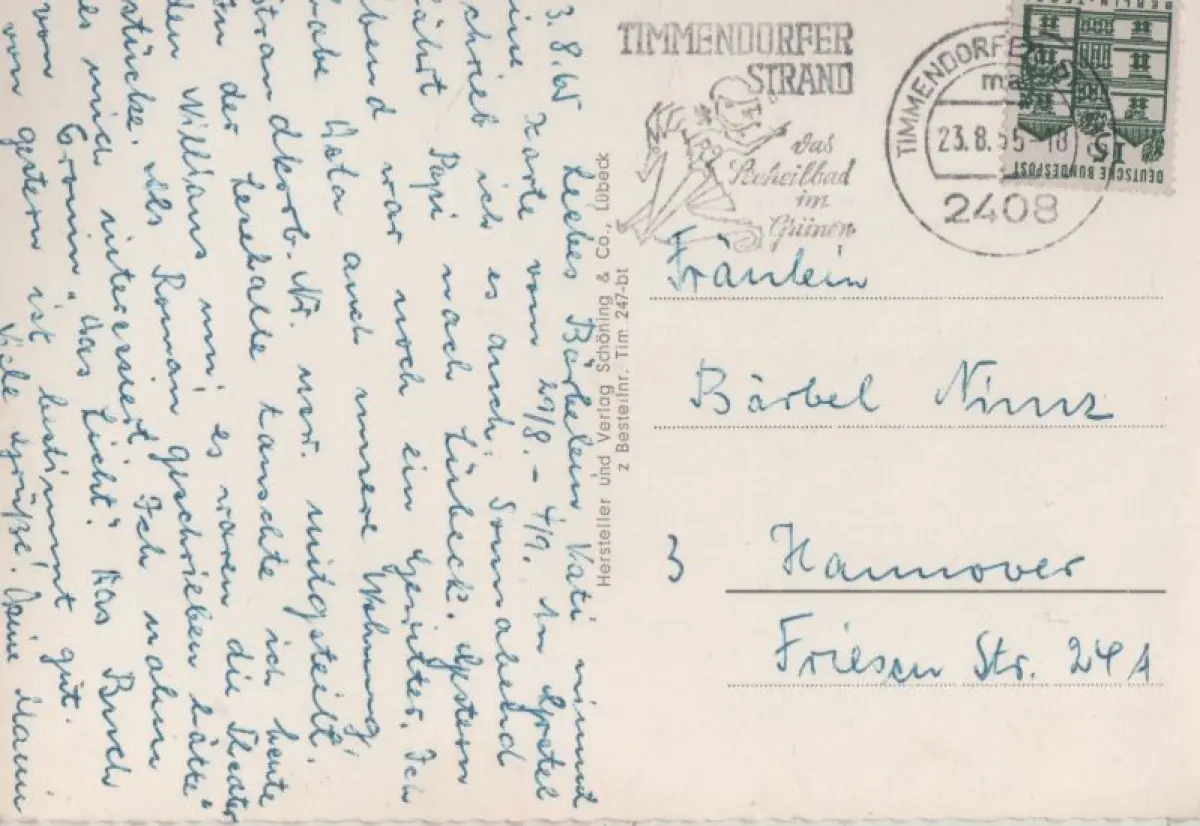 TIMMENDORFER
STRAND
das
Seeheilbad
im
Grünen
TIMMENDORFER
23.8.65-18
2408
15
DEUTSCHE BUNDESPOST
BERLIN-TEGEL
3.8.65 Liebes Bärbelein Vati nimmt
ine Karte vom 29/8. - 4/9. An Gretel
chrieb ich es auch. Sonnabend
ährt Papi nach Lübeck. Gestern
bend war noch ein Gewitter. Ich
abe Asta auch unsere Wohnung,
trandkorb-Nr. usw. mitgeteilt.
In der Lesehalle tauschte ich heute
den Williams um; es waren die Theater
stücke. Als Roman geschrieben hätte
es mich interessiert. Ich nahm
von Cronin "Das Licht". Das Buch
von gestern ist bestimmt gut.
Viele Grüße! Deine Mami
Hersteller und Verlag Schöning & Co., Lübeck
z Bestellnr. Tim 247-bt
Fräulein
Bärbel Nimz
3 Hannover
Friesen Str. 24A